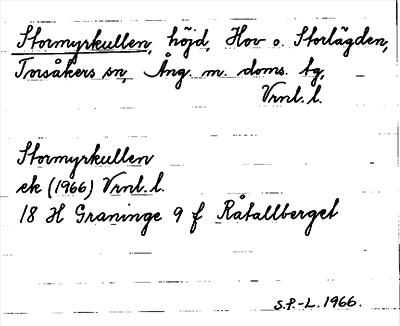 Stormyrkullen, höjd, Hov o. Storlägden,
Torsåkers sn, Ång. m. doms. tg,
Vrnl. l.
Stormyrkullen
ek (1966) Vrnl. l.
18 H Graninge 9 f Råtallberget
S.P.-L. 1966.